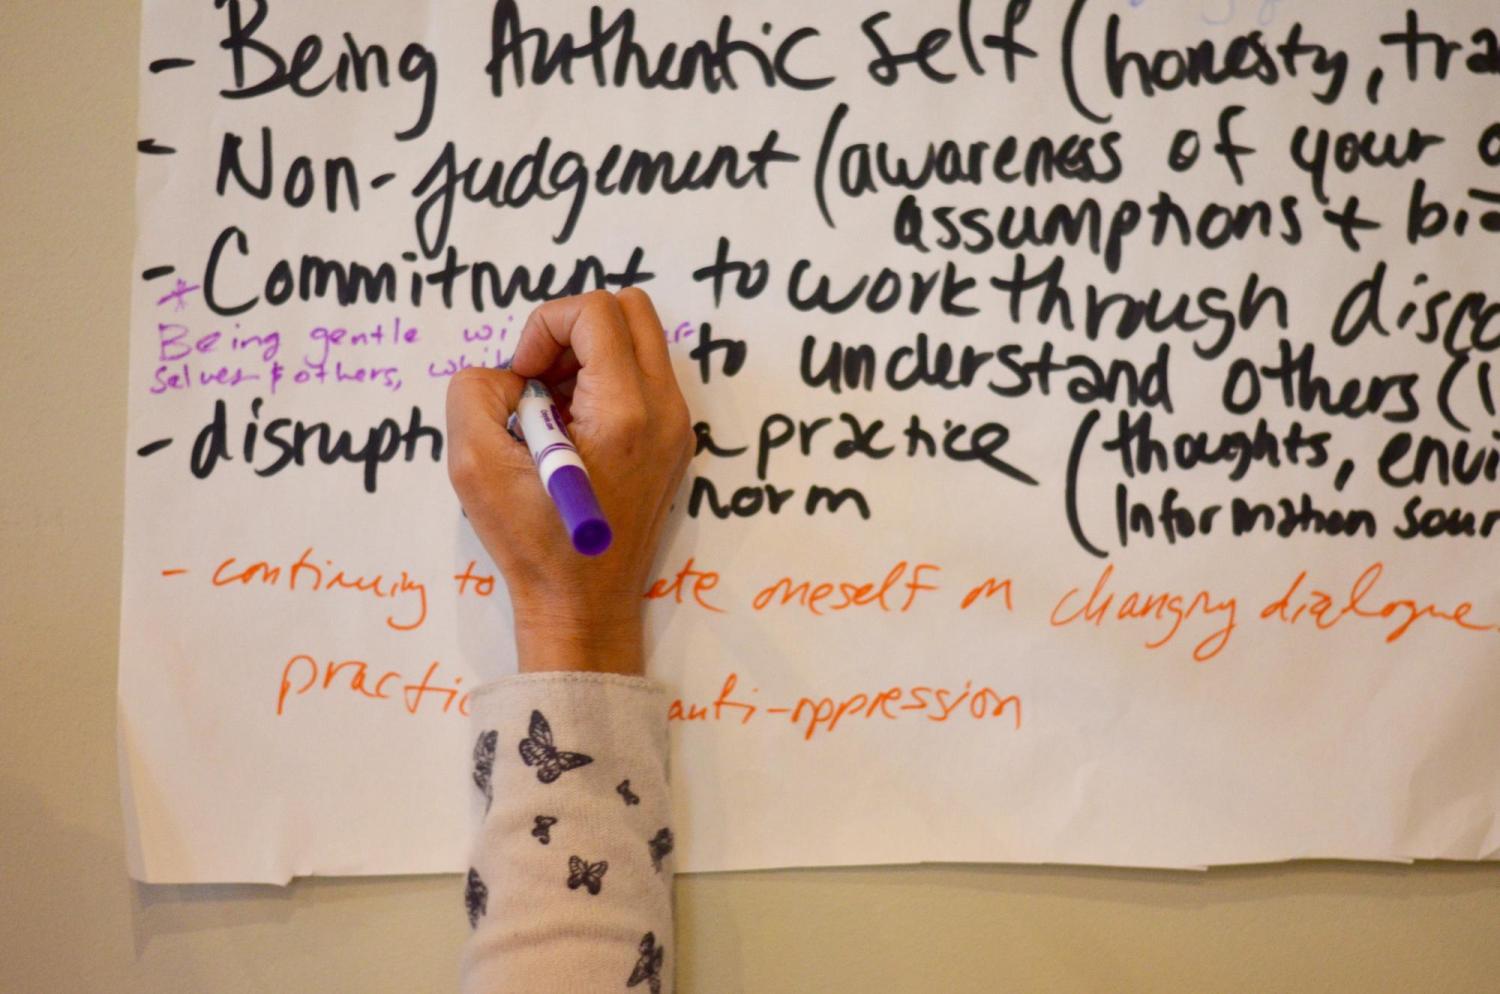 - Being Authentic Self (honesty, tra
- Non-judgement (awareness of your
assumptions + bi
- Commitment to work through disco
* Being gentle wi
to understand others (
selves & others, whil
- disrupti a practice (thoughts, envi
norm Information sour
- continuing to ete oneself on changing dialogue
practic anti-oppression